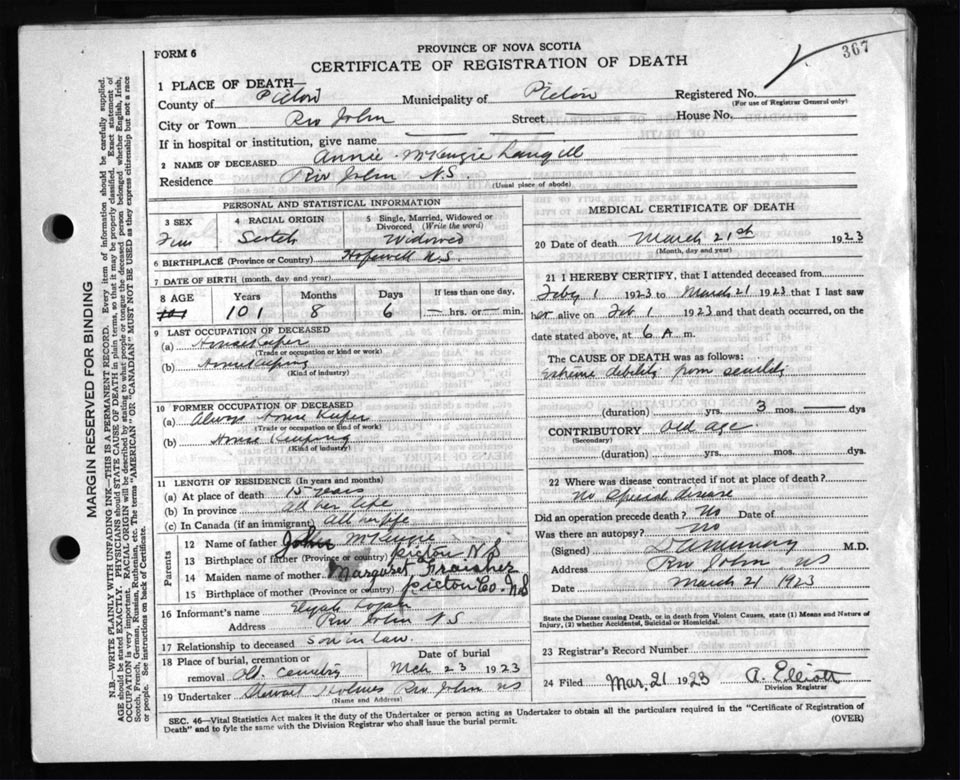 367
PROVINCE OF NOVA SCOTIA
FORM 6
CERTIFICATE OF REGISTRATION OF DEATH
1 PLACE OF DEATH—
County of Pictou Municipality of Pictou Registered No.
(For use of Registrar General only)
City or Town Riv John Street House No.
If in hospital or institution, give name
2 NAME OF DECEASED Annie McKenzie Langill
Residence Riv John N.S.
(Usual place of abode)
PERSONAL AND STATISTICAL INFORMATION
3 SEX Fem
4 RACIAL ORIGIN Scotch
5 Single, Married, Widowed or Divorced (Write the word) Widowed
6 BIRTHPLACE (Province or Country) Hopewell N.S.
7 DATE OF BIRTH (month, day and year)
8 AGE Years Months Days If less than one day,
101 101 8 6 — hrs. or — min.
9 LAST OCCUPATION OF DECEASED
(a) Housekeeper
(Trade or occupation or kind or work)
(b) Housekeeping
(Kind of industry)
10 FORMER OCCUPATION OF DECEASED
(a) Always House Keeper
(Trade or occupation or kind of work)
(b) House Keeping
(Kind of industry)
11 LENGTH OF RESIDENCE (In years and months)
(a) At place of death 15 years
(b) In province all her life
(c) In Canada (if an immigrant) all her life
Parents
12 Name of father John McKenzie
13 Birthplace of father (Province or country) Pictou N S
14 Maiden name of mother Margaret
15 Birthplace of mother (Province or country) Pictou Co. N.S
16 Informant's name Elijah
Address Riv John N.S.
17 Relationship to deceased son in law
18 Place of burial, cremation or removal Date of burial
Mch 23 1923
19 Undertaker Stewart Holmes Riv John NS
(Name and Address)
MEDICAL CERTIFICATE OF DEATH
20 Date of death March 21st 1923
(Month, day and year)
21 I HEREBY CERTIFY, that I attended deceased from
Feby 1 1923 to March 21 1923 that I last saw
her alive on Feb 1 1923 and that death occurred, on the
date stated above, at 6 A. m.
The CAUSE OF DEATH was as follows:
Extreme debility from senility
(duration) yrs. 3 mos. — dys
CONTRIBUTORY old age.
(Secondary)
(duration) yrs. mos. dys.
22 Where was disease contracted if not at place of death?
No special disease
Did an operation precede death? No Date of
Was there an autopsy? no
(Signed) M.D.
Address Riv John NS
Date March 21 1923
State the Disease causing Death, or in death from Violent Causes, state (1) Means and Nature of
Injury, (2) whether Accidental, Suicidal or Homicidal.
23 Registrar's Record Number
24 Filed Mar. 21 1923 A. Elliott
Division Registrar
SEC. 46—Vital Statistics Act makes it the duty of the Undertaker or person acting as Undertaker to obtain all the particulars required in the "Certificate of Registration of
Death" and to fyle the same with the Division Registrar who shall issue the burial permit.
(OVER)
MARGIN RESERVED FOR BINDING
N.B.—WRITE PLAINLY WITH UNFADING INK—THIS IS A PERMANENT RECORD. Every item of information should be carefully supplied.
AGE should be stated EXACTLY. PHYSICIANS should STATE CAUSE OF DEATH in plain terms, so that it may be properly classified. Exact statement of
OCCUPATION is very important. RACIAL ORIGIN will be described by stating to what people or tongue the deceased person belonged whether English, Irish,
Scotch, French, German, Russian, Ruthenian, etc. The terms "AMERICAN" OR "CANADIAN" MUST NOT BE USED as they express citizenship but not a race
or people. See instructions on back of Certificate.